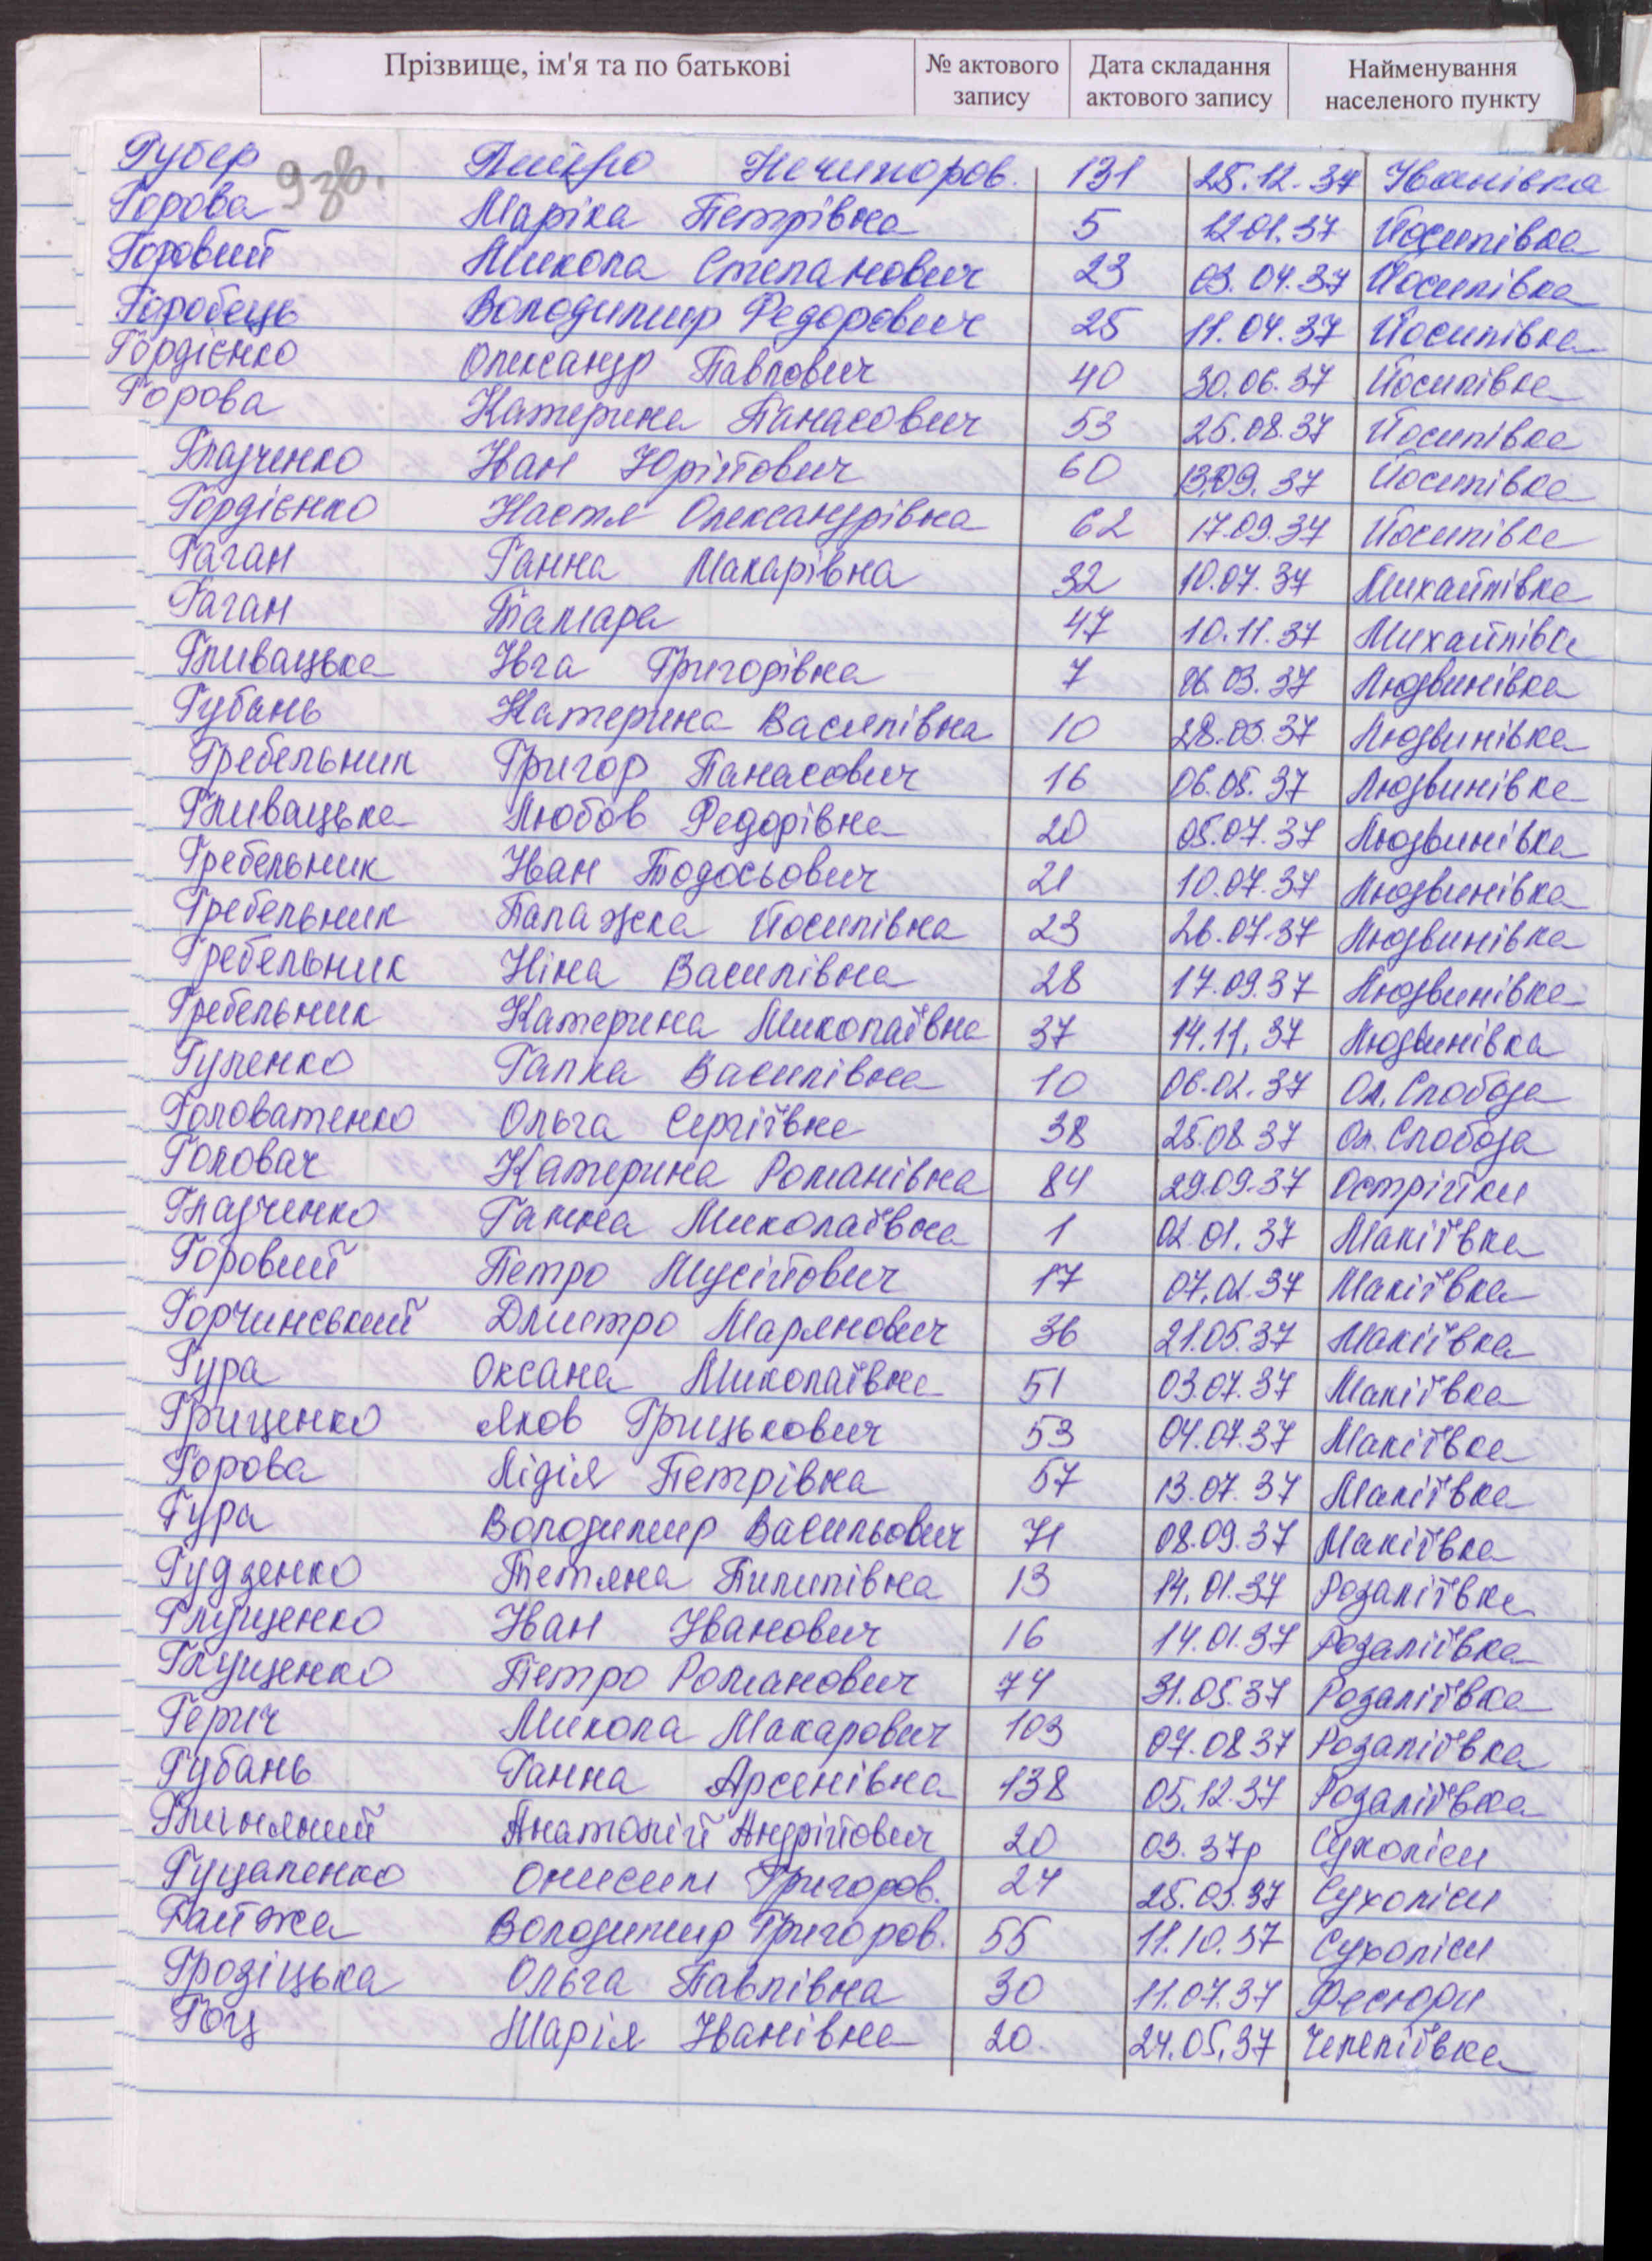 Прізвище, ім'я та по батькові № актового запису Дата складання актового запису Найменування населеного пункту
9 зв.
Губер Нечипоров. 131 25.12.37 Іванівка
Горова Маріка Петрівна 5 12.01.37 Йосипівка
Горовий Микола Степанович 23 03.04.37 Йосипівка
Горобець Володимир Федорович 25 11.04.37 Йосипівка
Гордієнко Олександр Павлович 40 30.06.37 Йосипівка
Горова Катерина Панасович 53 25.08.37 Йосипівка
Глазченко Іван Юрійович 60 13.09.37 Йосипівка
Гордієнко Настя Олександрівна 62 17.09.37 Йосипівка
Гаган Ганна Макарівна 32 10.07.37 Михайлівка
Гаган Тамара 47 10.11.37 Михайлівка
Гливацька Івга Григорівна 7 06.03.37 Людвинівка
Губань Катерина Василівна 10 28.03.37 Людвинівка
Гребельник Григор Панасович 16 06.05.37 Людвинівка
Гливацька Любов Федорівна 20 05.07.37 Людвинівка
Гребельник Іван Тодосьович 21 10.07.37 Людвинівка
Гребельник Палажка Йосипівна 23 26.07.37 Людвинівка
Гребельник Ніна Василівна 28 17.09.37 Людвинівка
Гребельник Катерина Миколаївна 37 14.11.37 Людвинівка
Гуленко Галка Василівна 10 06.02.37 Ол. Слобода
Головатенко Ольга Сергіївна 38 25.08.37 Ол. Слобода
Головач Катерина Романівна 84 29.09.37 Острійки
Глазченко Ганна Миколаївна 1 02.01.37 Макіївка
Горовий Петро Мусійович 17 07.02.37 Макіївка
Горчинський Дмитро Марянович 36 21.05.37 Макіївка
Гура Оксана Миколаївна 51 03.07.37 Макіївка
Гриценко Яков Грицькович 53 04.07.37 Макіївка
Горова Лідія Петрівна 57 13.07.37 Макіївка
Гура Володимир Васильович 71 08.09.37 Макіївка
Гудзенко Тетяна Пилипівна 13 14.01.37 Розаліївка
Глущенко Іван Іванович 16 14.01.37 Розаліївка
Глущенко Петро Романович 74 31.05.37 Розаліївка
Герич Микола Макарович 103 07.08.37 Розаліївка
Губань Ганна Арсенівна 138 05.12.37 Розаліївка
Глиняний Анатолій Андрійович 20 03.37р Сухоліси
Гуцаленко Онисим Григоров. 24 25.03.37 Сухоліси
Гайжа Володимир Григоров. 55 11.10.37 Сухоліси
Грозіцька Ольга Павлівна 30 11.07.37 Фесюри
Гоц Марія Іванівна 20. 24.05.37 Чепеліївка